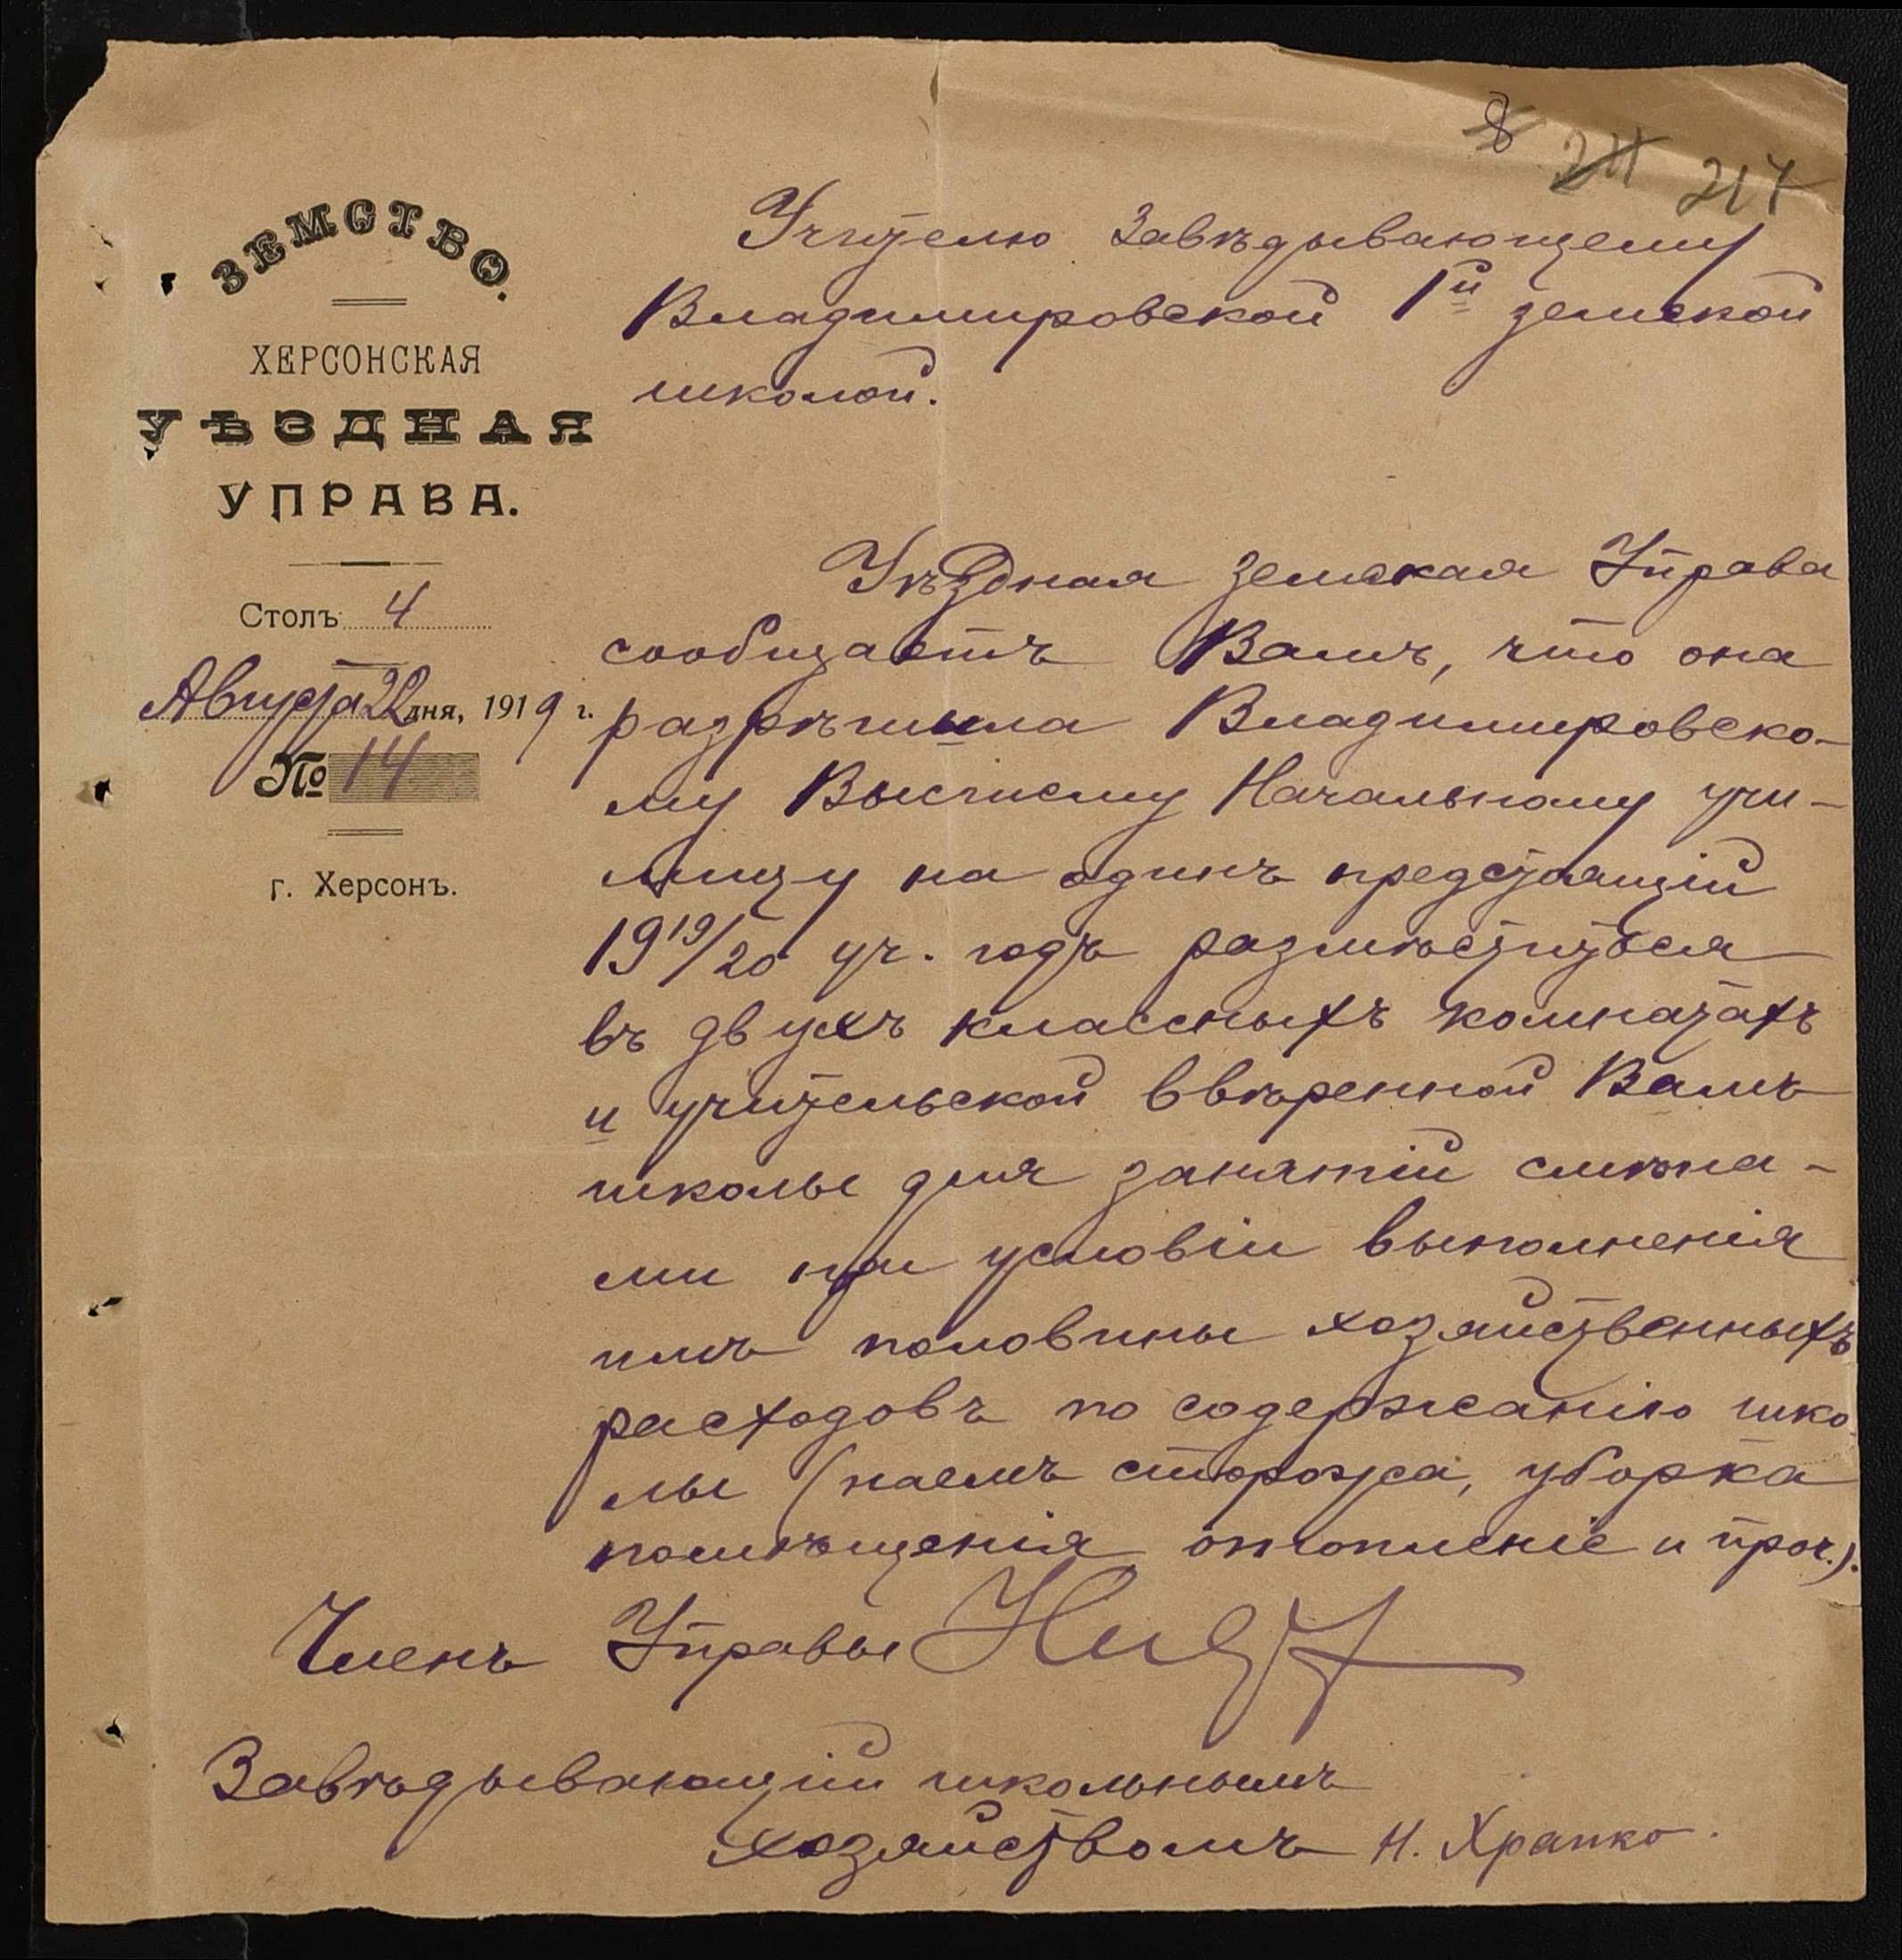 8 211 217
ЗЕМСТВО.
ХЕРСОНСКАЯ
УѢЗДНАЯ
УПРАВА.
Столъ 4
Августа 22 дня, 1919 г.
№ 14
г. Херсонъ.
Учителю Завѣдывающему
Владимировской 1й земской
школой.
Уѣздная земская Управа
сообщаетъ Вамъ, что она
разрѣшила Владимировско-
му Высшему Начальному учи-
лищу на одинъ предстоящій
1919/20 уч. годъ размѣститься
въ двухъ классныхъ комнатахъ
и учительской ввѣренной Вамъ
школы для занятій смѣна-
ми при условіи выполненія
имъ половины хозяйственныхъ
расходовъ по содержанію шко
лы (наемъ сторожа, уборка
помѣщенія отопленіе и проч.).
Членъ Управы
Завѣдывающій школьнымъ
хозяйствомъ Н. Храпко.